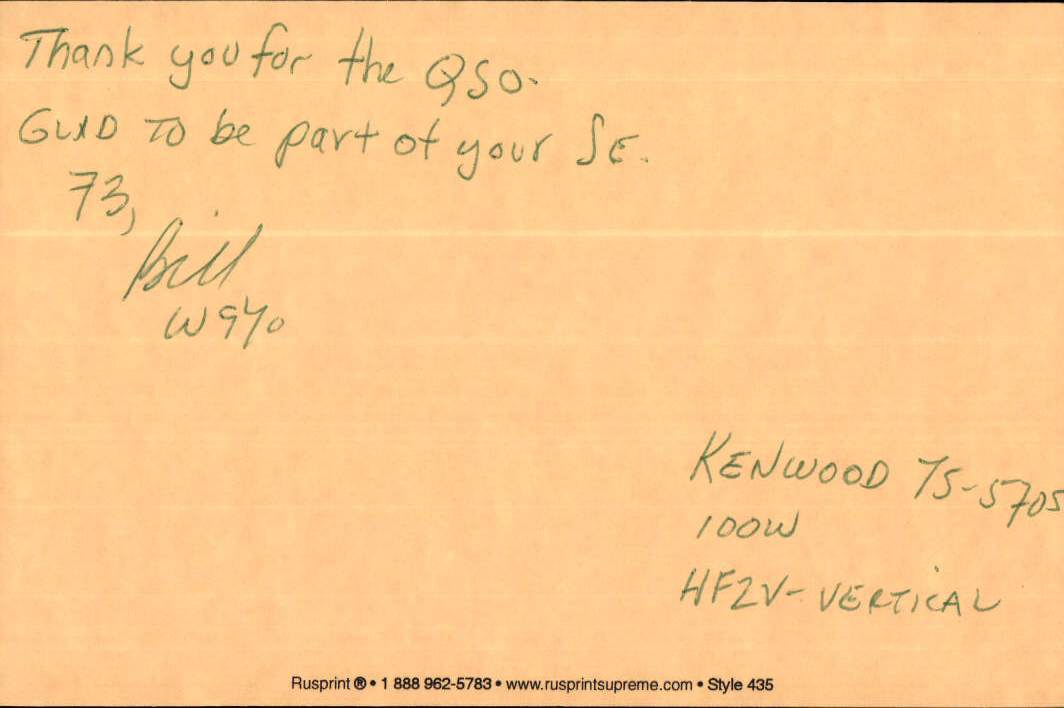 Thank you for the QSO.
GLAD TO be part of your SE.
73,
Bill
W9YO
KENWOOD TS-570S
100W
HF2V- VERTICAL
Rusprint ® • 1 888 962-5783 • www.rusprintsupreme.com • Style 435